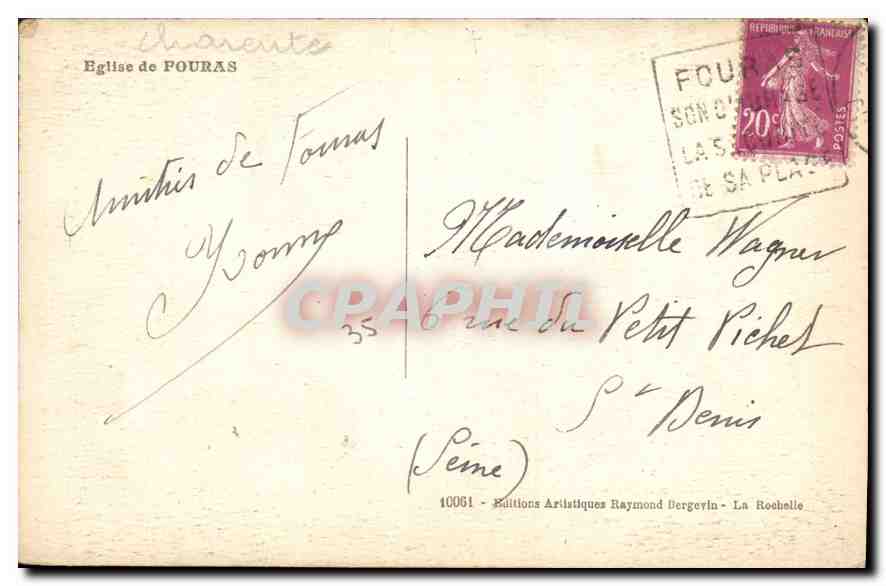 charente
Eglise de FOURAS
REPUBLIQUE FRANÇAISE
20c
POSTES
FOURAS
SON
LA
DE SA PLAGE
Amitiés de Fouras
Yvonne
Mademoiselle Wagner
6 rue du Petit Pichet
St Denis
(Seine)
35
CPAPHIL
10061 - Editions Artistiques Raymond Bergevin - La Rochelle